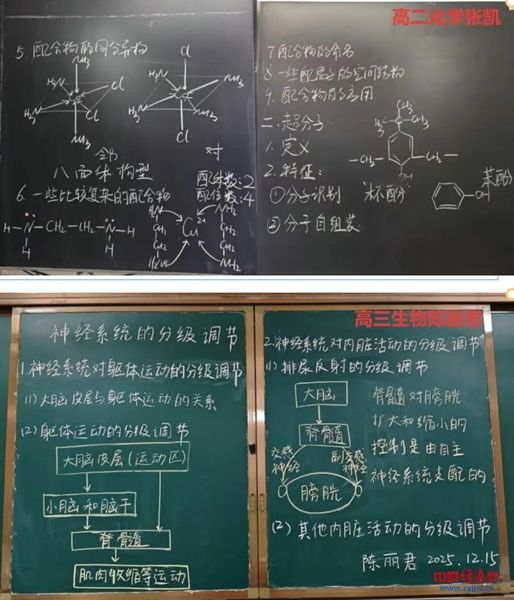 高二化学张凯
5. 配合物的同分异构
NH3
H3N
Cl
H3N
Cl
NH3
邻
Cl
H3N
NH3
H3N
NH3
Cl
对
八面体构型
6. 一些比较复杂的配合物
配体数:2
配位数:4
H-N-CH2-CH2-N-H
H
H
Cu2+
H2N
CH2
CH2
H2N
NH2
CH2
CH2
NH2
7. 配合物的命名
8. 一些配离子的空间结构
9. 配合物的应用
二. 超分子
1. 定义
2. 特征:
①分子识别
②分子自组装
CH3
-CH2
CH2-
OH
"杯酚"
苯酚
-OH
高三生物陈丽君
神经系统的分级调节
1.神经系统对躯体运动的分级调节
(1)大脑皮层与躯体运动的关系
(2)躯体运动的分级调节
大脑皮层(运动区)
小脑和脑干
脊髓
肌肉收缩等运动
2.神经系统对内脏活动的分级调节
(1)排尿反射的分级调节
大脑
脊髓
交感神经
副交感神经
膀胱
脊髓对膀胱
扩大和缩小的
控制是由自主
神经系统支配的
(2)其他内脏活动的分级调节
陈丽君 2025.12.15
www.zyjjw.cn